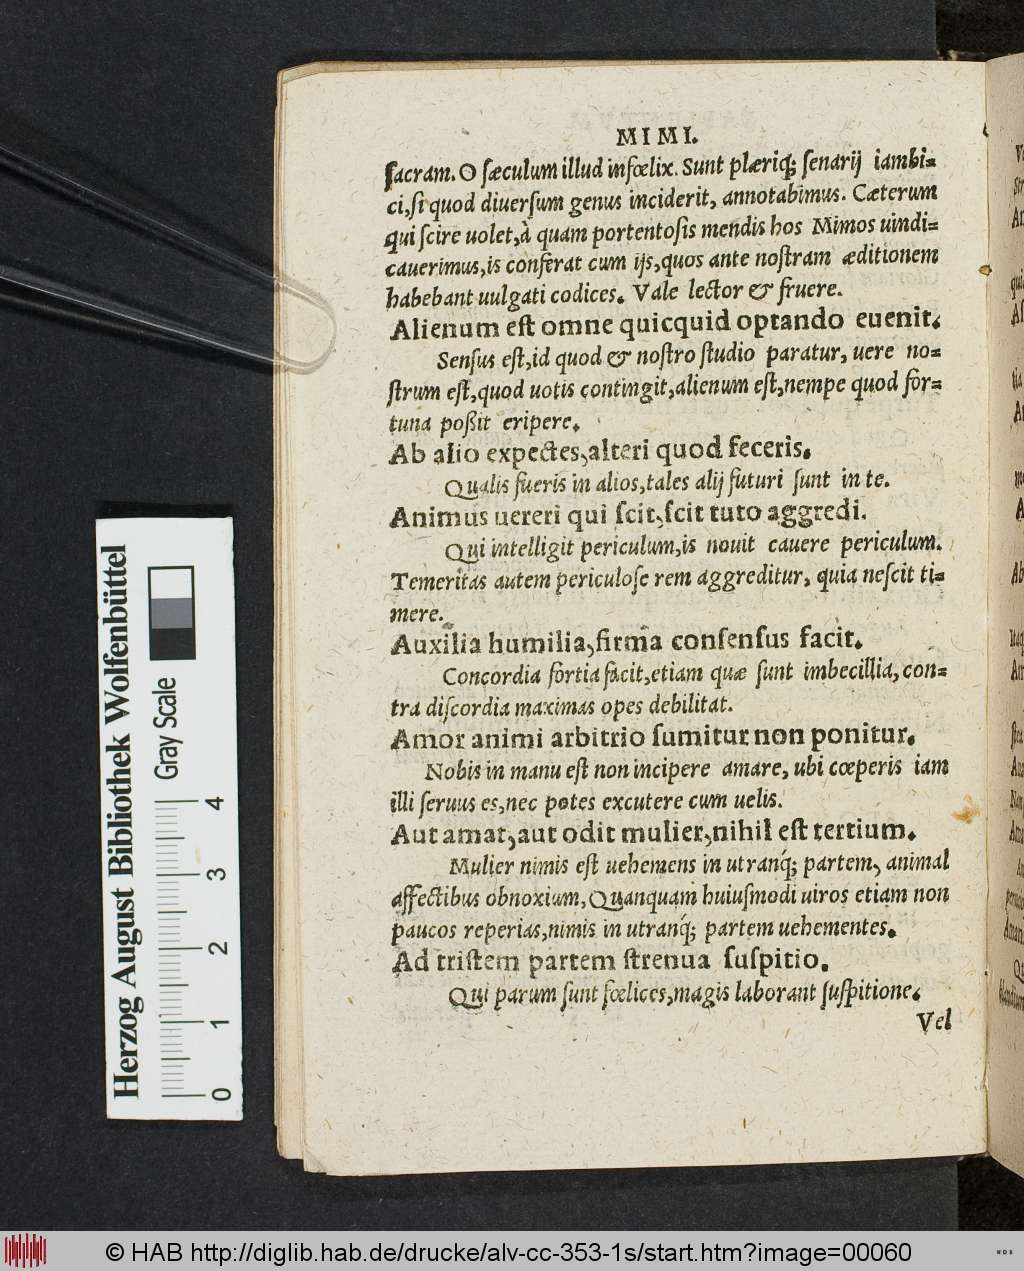 MIMI.
sacram. O sæculum illud infœlix. Sunt plæriq; ſenarij iambi-
ci, ſi quod diuerſum genus inciderit, annotabimus. Cæterum
qui ſcire uolet, à quam portentoſis mendis hos Mimos uindi-
cauerimus, is conferat cum ijs, quos ante noſtram æditionem
habebant uulgati codices. Vale lector & fruere.
Alienum eſt omne quicquid optando euenit.
Senſus eſt, id quod & noſtro ſtudio paratur, uere no-
ſtrum eſt, quod uotis contingit, alienum eſt, nempe quod for-
tuna poßit eripere.
Ab alio expectes, alteri quod feceris.
Qualis fueris in alios, tales alij futuri ſunt in te.
Animus uereri qui ſcit, ſcit tuto aggredi.
Qui intelligit periculum, is nouit cauere periculum.
Temeritas autem periculoſe rem aggreditur, quia neſcit ti-
mere.
Auxilia humilia, firma conſenſus facit.
Concordia fortia facit, etiam quæ ſunt imbecillia, con-
tra diſcordia maximas opes debilitat.
Amor animi arbitrio ſumitur non ponitur.
Nobis in manu eſt non incipere amare, ubi cœperis iam
illi ſeruus es, nec potes excutere cum uelis.
Aut amat, aut odit mulier, nihil eſt tertium.
Mulier nimis eſt uehemens in utranq́; partem, animal
affectibus obnoxium, Quanquam huiuſmodi uiros etiam non
paucos reperias, nimis in utranq́; partem uehementes.
Ad triſtem partem ſtrenua ſuſpitio.
Qui parum ſunt fœlices, magis laborant ſuſpitione.
Vel
Herzog August Bibliothek Wolfenbüttel
Gray Scale
0 1 2 3 4
© HAB http://diglib.hab.de/drucke/alv-cc-353-1s/start.htm?image=00060